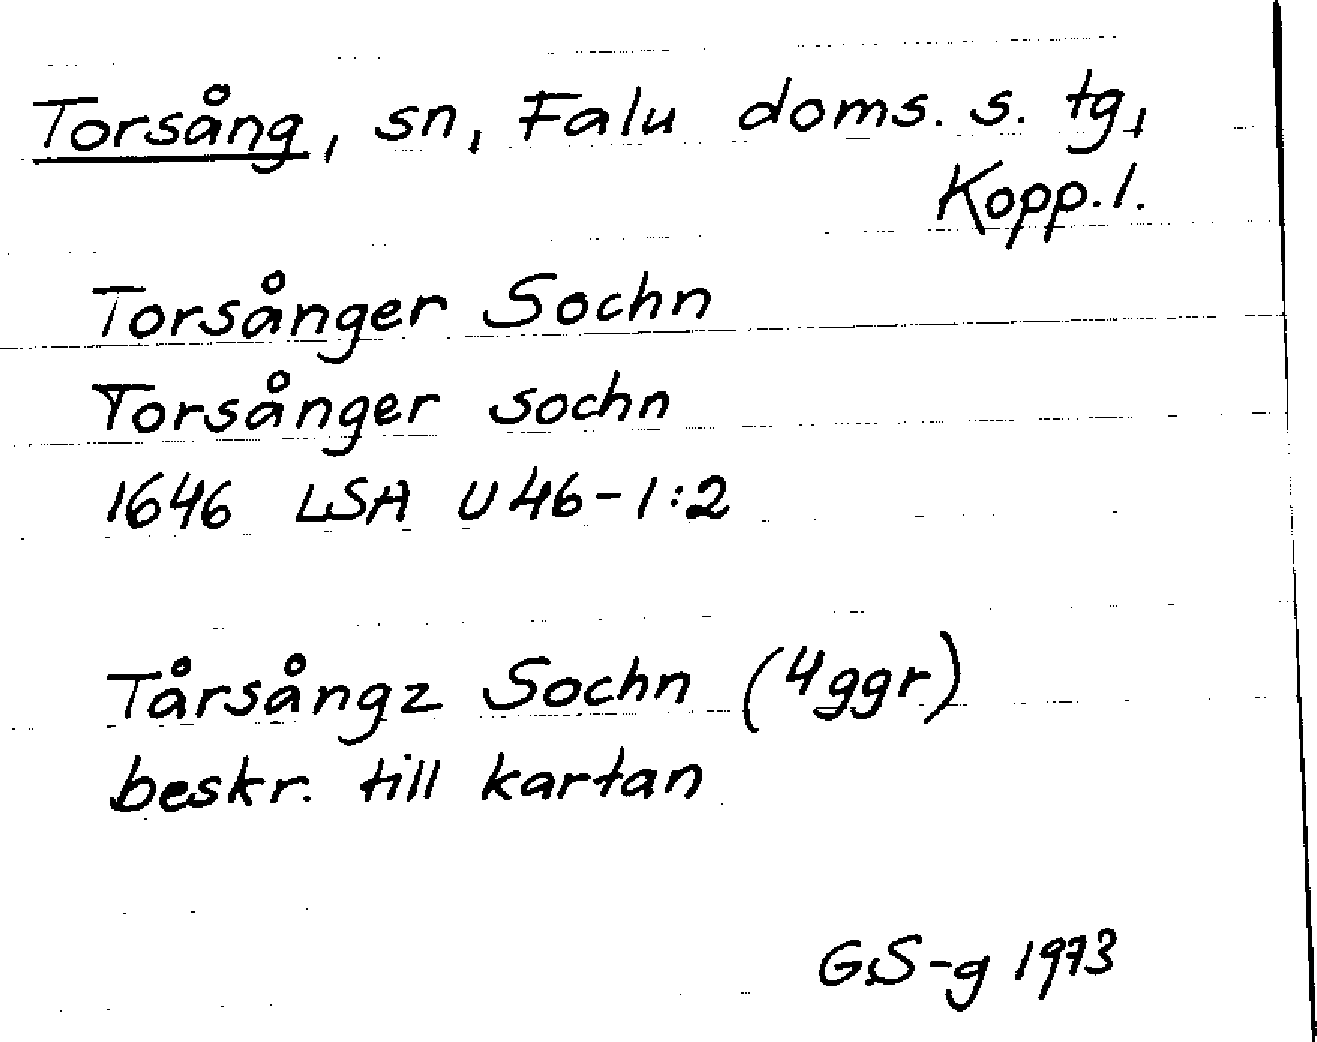 Torsång, sn, Falu doms. s. tg,
Kopp. l.
Torsånger Sochn
Torsånger sochn
1646 LSA U46-1:2
Tårsångz Sochn (4ggr)
beskr. till kartan
G.S-g 1973